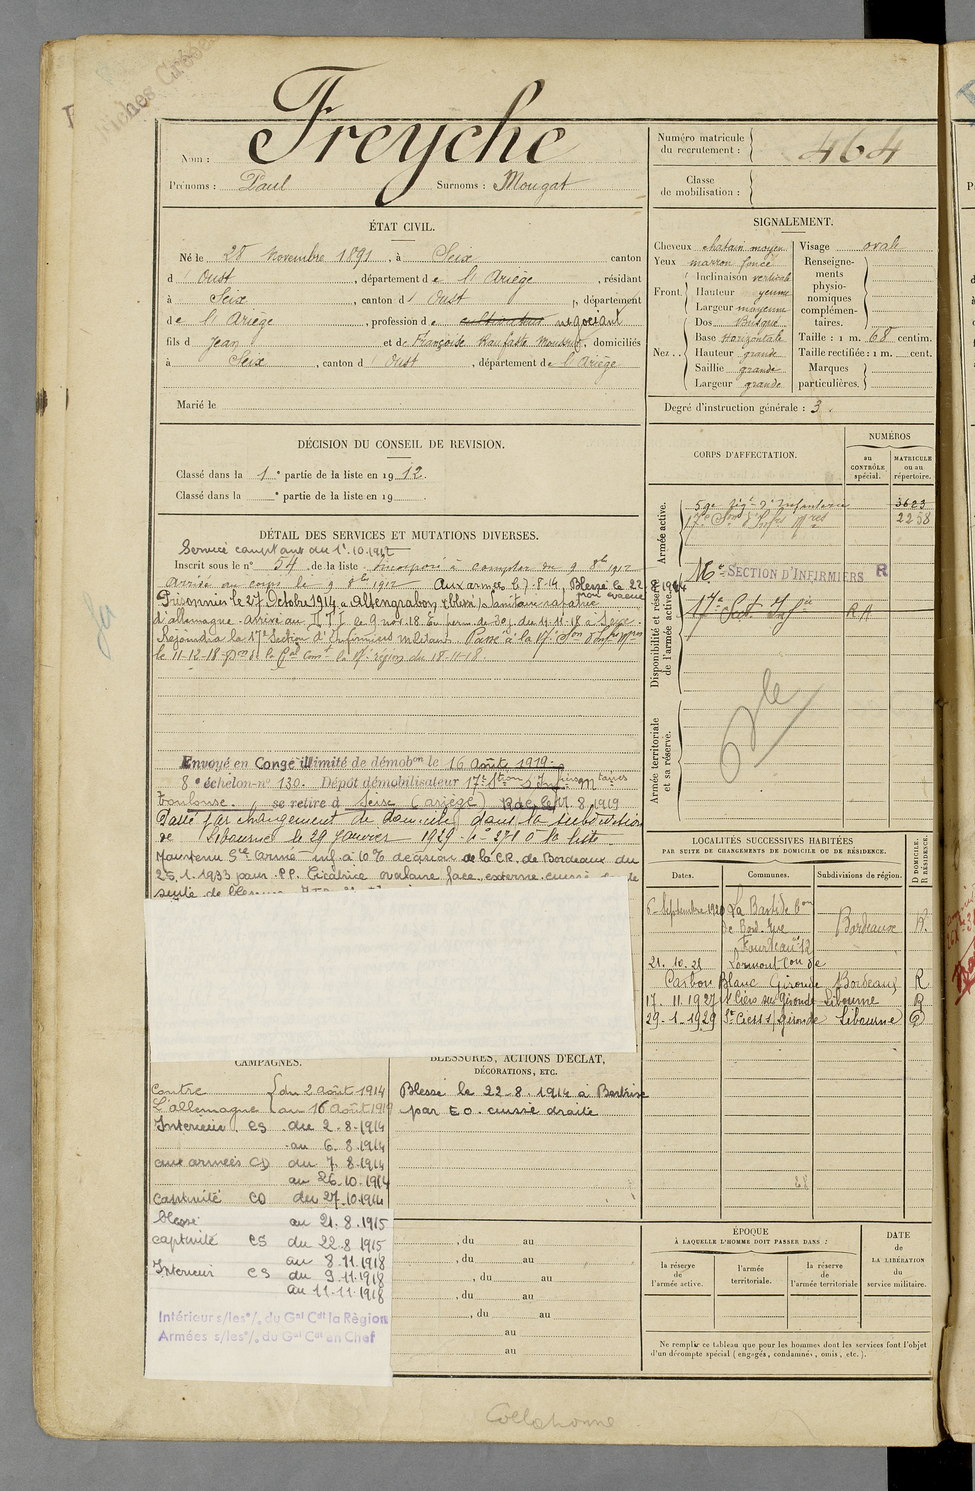 Freyche
Nom :
Prénoms : Paul Surnoms : Mougat
Numéro matricule
du recrutement : 464
Classe
de mobilisation :
ÉTAT CIVIL.
Né le 28 Novembre 1891, à Seix canton
d'Oust, département de l'Ariège, résidant
à Seix, canton d'Oust, département
de l'Ariège, profession de cultivateur négociant
fils d Jean et de Françoise, domiciliés
à Seix, canton d'Oust, département de l'Ariège
Marié le
SIGNALEMENT.
Cheveux chatain moyen
Yeux marron foncé
Front. Inclinaison verticale
Hauteur moyenne
Largeur moyenne
Nez .. Dos Busqué
Base Horizontale
Hauteur grande
Saillie grande
Largeur grande
Visage ovale
Renseigne-
ments
physio-
nomiques
complémen-
taires.
Taille : 1 m. 68 centim.
Taille rectifiée : 1 m. cent.
Marques
particulières.
Degré d'instruction générale : 3.
DÉCISION DU CONSEIL DE REVISION.
Classé dans la 1e partie de la liste en 1912.
Classé dans la e partie de la liste en 19
CORPS D'AFFECTATION.
NUMÉROS
au
CONTRÔLE
spécial.
MATRICULE
ou au
répertoire.
Armée active.
59e Régt d'Infanterie 3623
17e Son d'Infrs Mres 2258
Disponibilité et réserve
de l'armée active.
SECTION D'INFIRMIERS R
17e Sect. Infre R A
Armée territoriale
et sa réserve.
DÉTAIL DES SERVICES ET MUTATIONS DIVERSES.
Service comptant du 1r.10.1912
Inscrit sous le n° 54 de la liste. Incorporé à compter du 9 8bre 1912
Arrivé au corps le 9 8bre 1912 Aux armées le 7-8-14, Blessé le 22 8 1914
non évacué
Prisonnier le 27 Octobre 1914 a Altengrabon (blessé) Sanitaire rapatrié
d'allemagne arrivé au le 9 nov. 18. En perm. de 30 j. du 11-11-18 a Seix.
Rejoindra la 17e Section d'Infirmiers militaires. Passé à la 17e Son d'Infrs Mres
le 11-12-18 la 17e région du 18-11-18.
Envoyé en Congé illimité de démobon le 16 Août 1919
8e échelon-n° 130. Dépôt démobilisateur 17e Stion d'Infirm Mtaires
Toulouse. se retire à Seix (ariège) 17.8.1919
Passé par changement de domicile dans la subdivision
de Libourne le 29 Janvier 1929 - n° 271 de la liste
Maintenu Sce armé inf. à 10% décision de la C.R. de Bordeaux du
25.1.1933 pour P.P. Cicatrice ovalaire face externe cuisse
suite de blessure
LOCALITÉS SUCCESSIVES HABITÉES
PAR SUITE DE CHANGEMENTS DE DOMICILE OU DE RÉSIDENCE.
Dates. Communes. Subdivisions de région. D DOMICILE. R RÉSIDENCE.
6 Septembre 1920 La Bastide Con
de Bord. Rue Bordeaux R.
12
21.10.21 Lormont Con de
Carbon Blanc Gironde Bordeaux R
17.11.1927 St Ciers sur Gironde Libourne R
29-1-1929 St Ciers s/ Gironde Libourne D
CAMPAGNES.
contre du 2 août 1914
L'allemagne au 16 août 1919
Intérieur CS du 2.8.1914
au 6.8.1914
aux armées CD du 7.8.1914
au 26.10.1914
captivité CD du 27.10.1914
blessé au 21.8.1915
captivité CS du 22.8.1915
au 8.11.1918
Intérieur CS du 9.11.1918
au 11.11.1918
Intérieur s/les o/. du Gal Cdt la Règion
Armées s/les o/. du Gal Cdt en Chef
BLESSURES, ACTIONS D'ÉCLAT,
DÉCORATIONS, ETC.
Blessé le 22.8.1914 à Bertrix
par E O. cuisse droite
, du au
, du au
, du au
, du au
, du au
au
au
ÉPOQUE
À LAQUELLE L'HOMME DOIT PASSER DANS :
la réserve
de
l'armée active.
l'armée
territoriale.
la réserve
de
l'armée territoriale
DATE
de
LA LIBÉRATION
du
service militaire.
Ne remplir ce tableau que pour les hommes dont les services font l'objet
d'un décompte spécial (engagés, condamnés, omis, etc.).